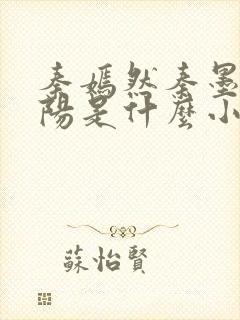 秦嫣然秦墨
陽是什麼小
蘇怡賢